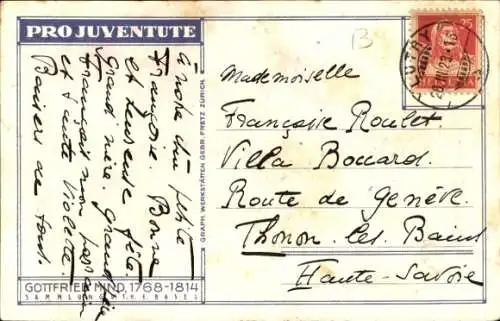 PRO JUVENTUTE
à notre chère petite
Françoise. Bonne
et heureuse fête.
Grand'mère, grand
François mon parrain
et tante Violette.
Baisers de tous.
GOTTFRIED MIND, 1768-1814
SAMMLUNG BASEL
GRAPH. WERKSTÄTTEN GEBR. FRETZ, ZÜRICH.
13
25
LUTRY
HELVETIA
Mademoiselle
Françoise Roulet
Villa Bouard
Route de Genève
Thonon les Bains
Haute-Savoie